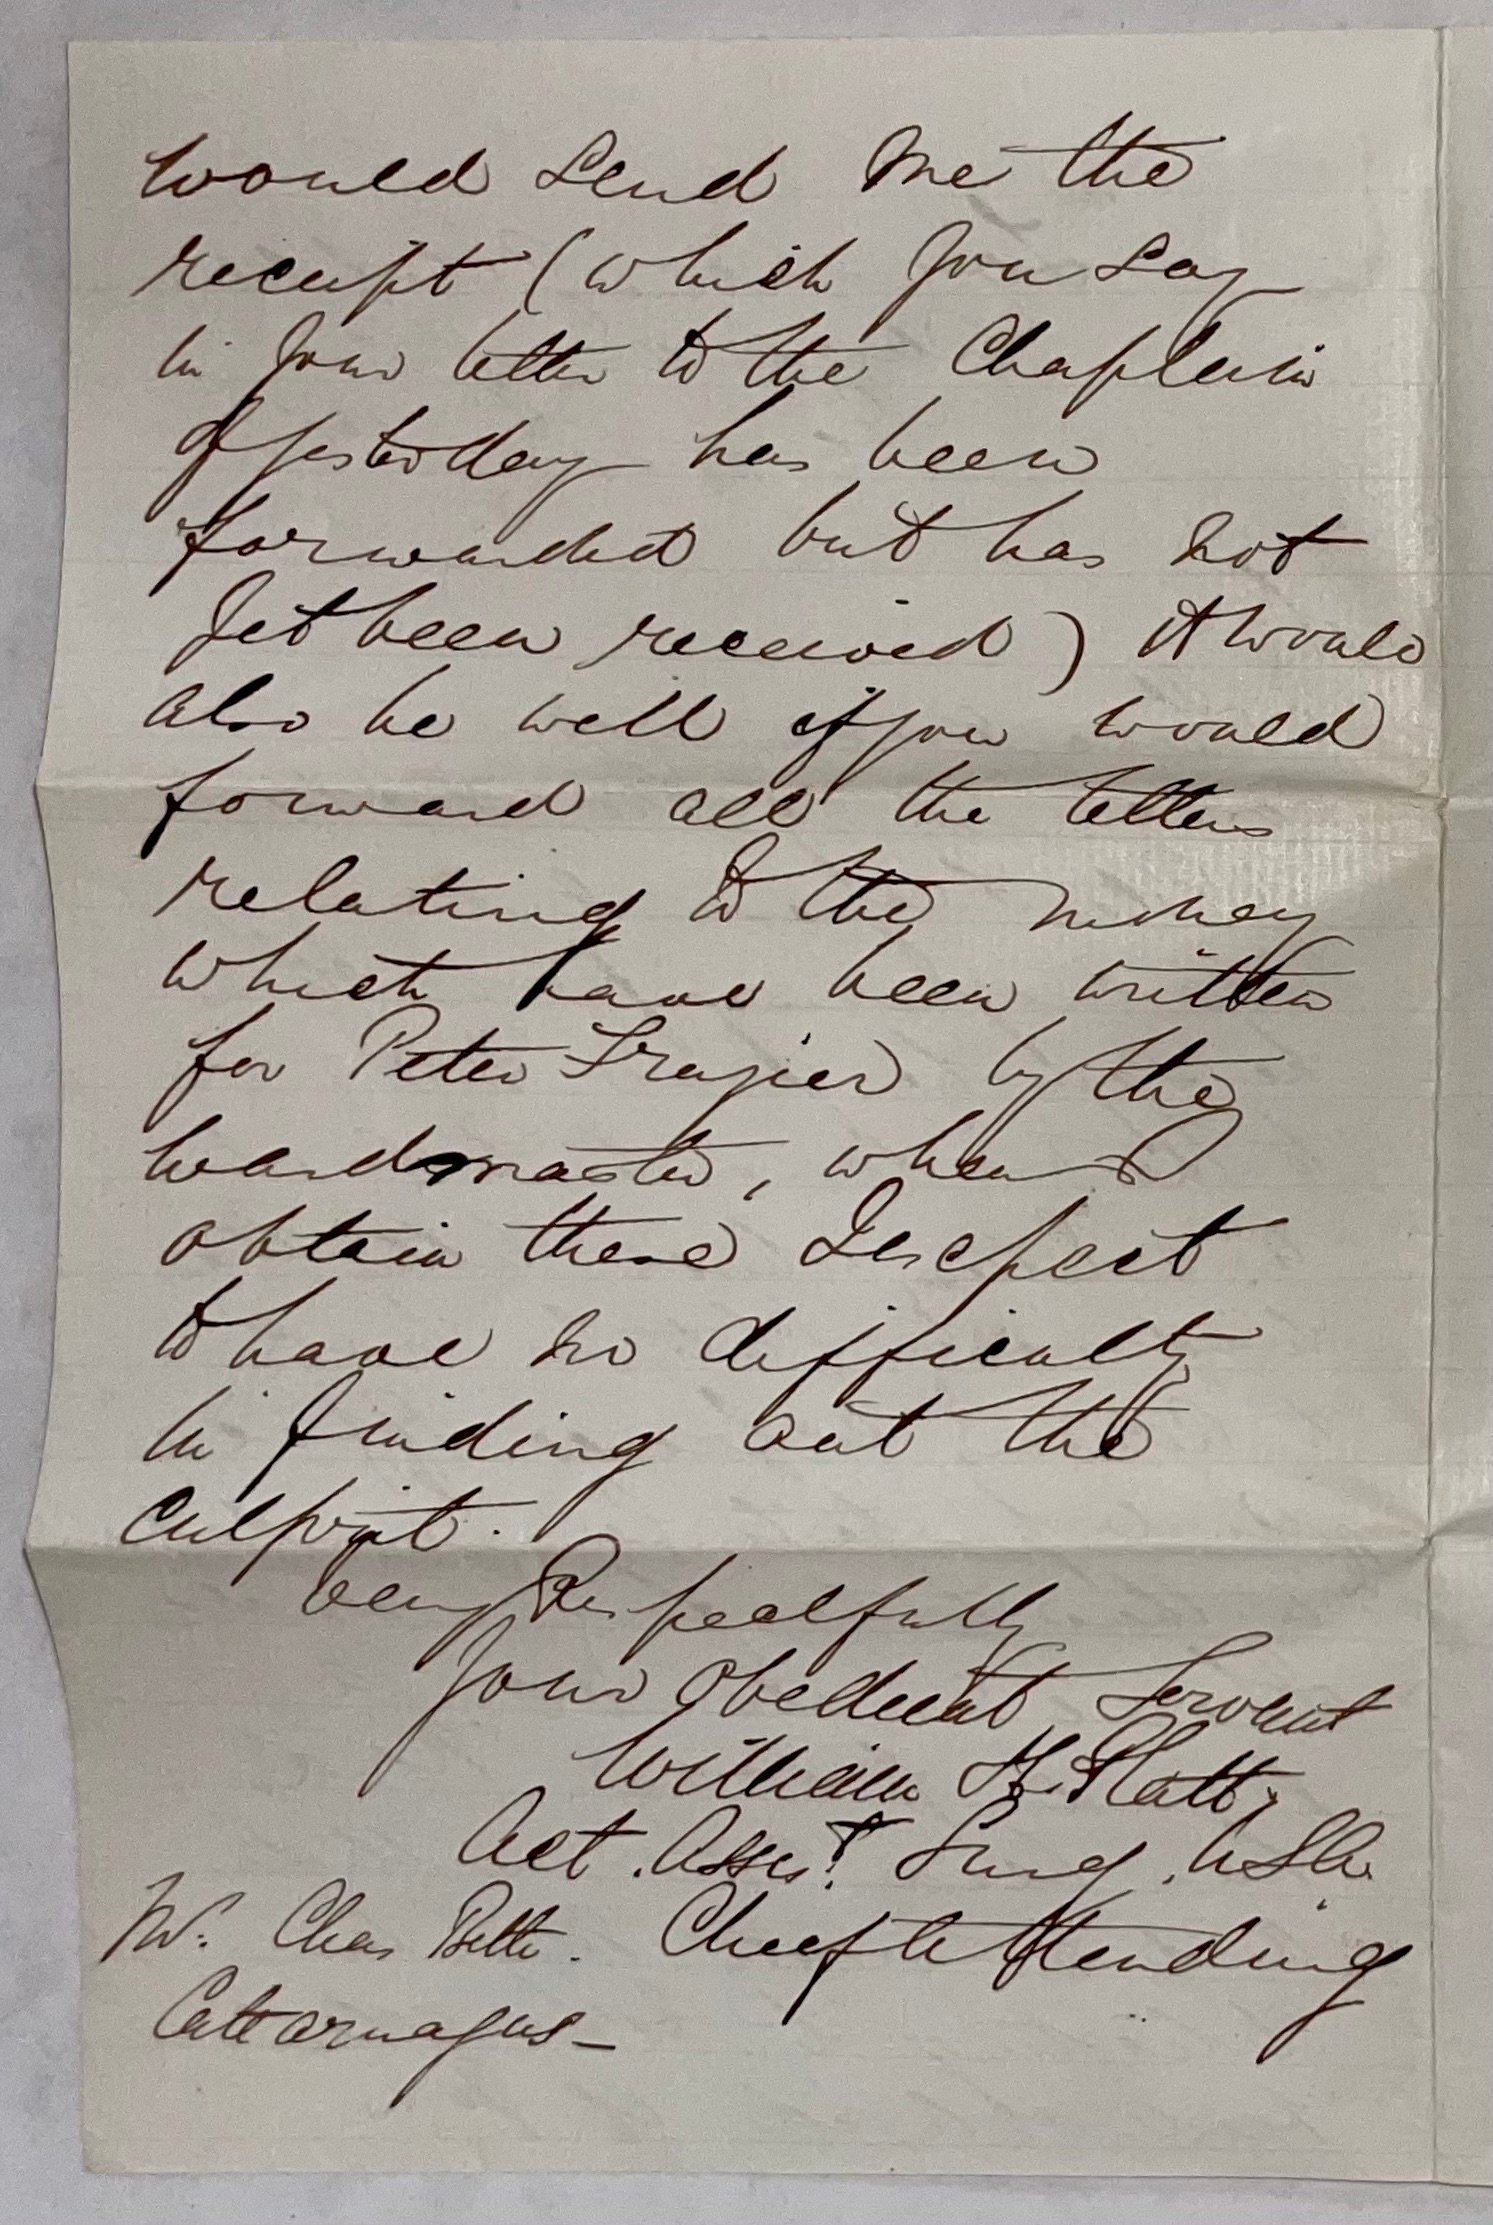 would send me the
receipt (which you say
in your letter to the Chaplain
of yesterday has been
forwarded but has not
yet been received) it would
also be well if you would
forward all the letters
relating to the money
which have been written
for Peter Frazier by the
wardmaster, when I
obtain these I expect
to have no difficulty
in finding out the
culprit.
Very Respectfully
Your Obedient Servant
William H. Platt,
Act. Assist. Surg. USA.
Mr. Chas Chief Attending